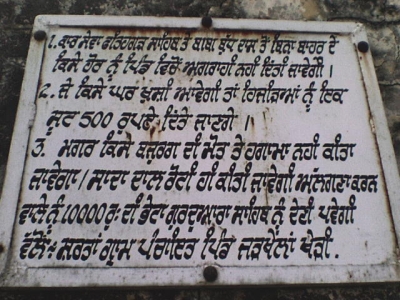 1. ਕਾਰ ਸੇਵਾ ਫਤਿਹਗੜ ਸਾਹਿਬ ਤੇ ਬਾਬਾ ਬੁੱਧ ਦਾਸ ਤੋਂ ਬਿਨਾ ਬਾਹਰ ਦੇ
ਕਿਸੇ ਹੋਰ ਨੂੰ ਪਿੰਡ ਵਿਚੋਂ ਅਗਰਾਹੀ ਨਹੀਂ ਦਿੱਤੀ ਜਾਵੇਗੀ।
2. ਜੇ ਕਿਸੇ ਘਰ ਖੁਸ਼ੀ ਆਵੇਗੀ ਤਾਂ ਹਿਜੜਿਆਂ ਨੂੰ ਇਕ
ਸੂਟ 500 ਰੁਪਏ ਦਿੱਤੇ ਜਾਣਗੇ।
3. ਮਗਰ ਕਿਸੇ ਬਜ਼ੁਰਗ ਦੀ ਮੌਤ ਤੇ ਹਗਾਮਾ ਨਹੀਂ ਕੀਤਾ
ਜਾਵੇਗਾ। ਸਾਦਾ ਦਾਲ ਰੋਟੀ ਹੀ ਕੀਤੀ ਜਾਵੇਗੀ ਅੱਲਗਣਾ ਕਰਨ
ਵਾਲੇ ਨੂੰ 10000 ਰੁ: ਦੀ ਭੇਟਾ ਗੁਰਦੁਆਰਾ ਸਾਹਿਬ ਨੂੰ ਦੇਣੀ ਪਵੇਗੀ
ਵੱਲੋਂ:- ਸਰਤਾ ਗ੍ਰਾਮ ਪੰਚਾਇਤ ਪਿੰਡ ਜੜਖੇਲਾਂ ਖੇੜੀ.